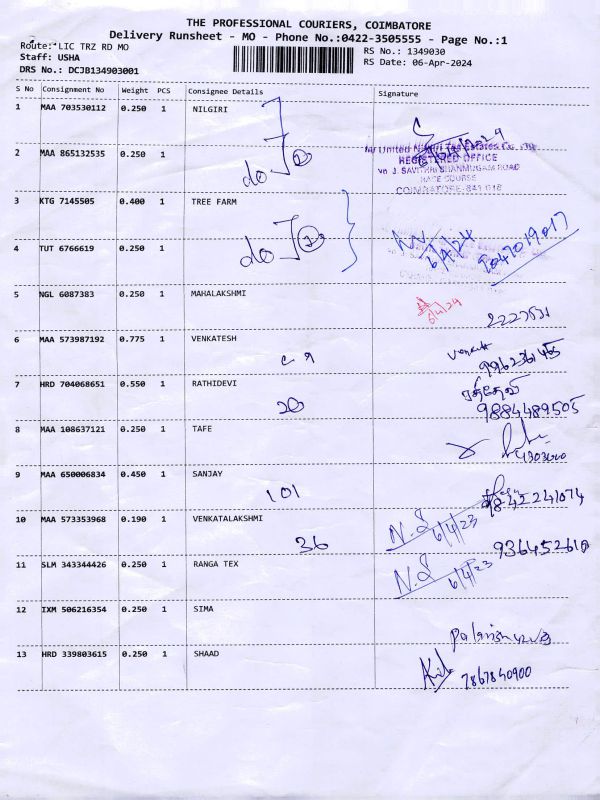 THE PROFESSIONAL COURIERS, COIMBATORE
Delivery Runsheet - MO - Phone No.:0422-3505555 - Page No.:1
Route: LIC TRZ RD MO
Staff: USHA
DRS No.: DCJB134903001
RS No.: 1349030
RS Date: 06-Apr-2024
S No Consignment No Weight PCS Consignee Details Signature
1 MAA 703530112 0.250 1 NILGIRI
2 MAA 865132535 0.250 1 do
for United Nilgiri Tea Estates Co. Ltd
REGISTERED OFFICE
No. 3, SAVITHRI SHANMUGAM ROAD
RACE COURSE
COIMBATORE-641 018
3 KTG 7145505 0.400 1 TREE FARM
4 TUT 6766619 0.250 1 do 6/4/24 9047019017
5 NGL 6087383 0.250 1 MAHALAKSHMI 6/4/24 2227531
6 MAA 573987192 0.775 1 VENKATESH
7 HRD 704068651 0.550 1 RATHIDEVI 20 ரத்தேவி
9884489505
8 MAA 108637121 0.250 1 TAFE
9 MAA 650006834 0.450 1 SANJAY 101 9842241074
10 MAA 573353968 0.190 1 VENKATALAKSHMI 36 N.S 6/4/23 9364526110
11 SLM 343344426 0.250 1 RANGA TEX N.S 6/4/23
12 IXM 506216354 0.250 1 SIMA
13 HRD 339803615 0.250 1 SHAAD 7867840900